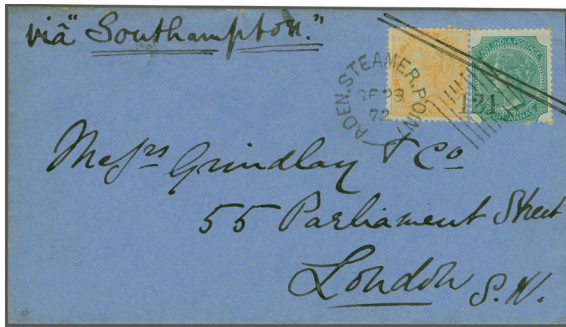 via "Southampton."
ADEN.STEAMER.POINT
SE 29
72
124
Messrs Grindlay & Co
55 Parliament Street
London S.W.